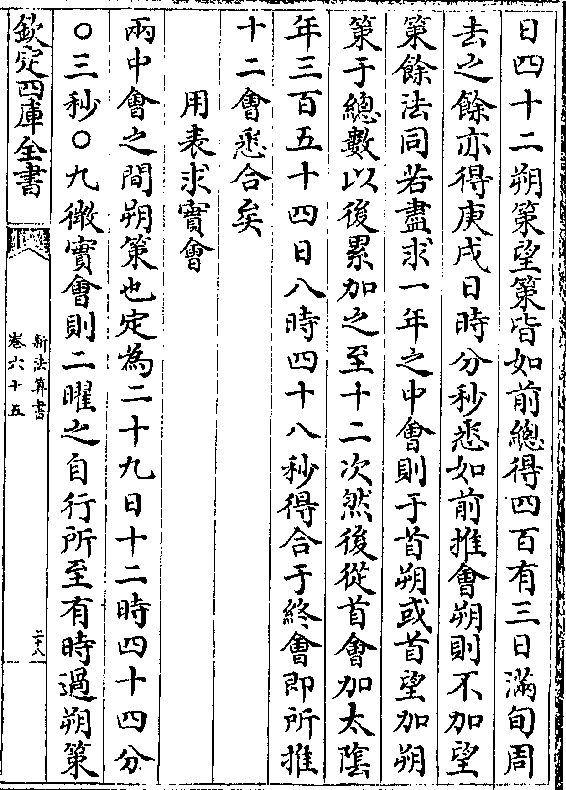 日四十二朔策望策皆如前總得四百有三日滿旬周
去之餘亦得庚戌日時分秒悉如前推會朔則不加望
策餘法同若盡求一年之中會則于首朔或首望加朔
策于總數以後累加之至十二次然後從首會加太隂
年三百五十四日八時四十八秒得合于終會即所推
十二會悉合矣
用表求實會
兩中會之間朔策也定為二十九日十二時四十四分
○三秒○九微實會則二曜之自行所至有時過朔策
欽定四庫全書
新法算書
卷六十五
二十八